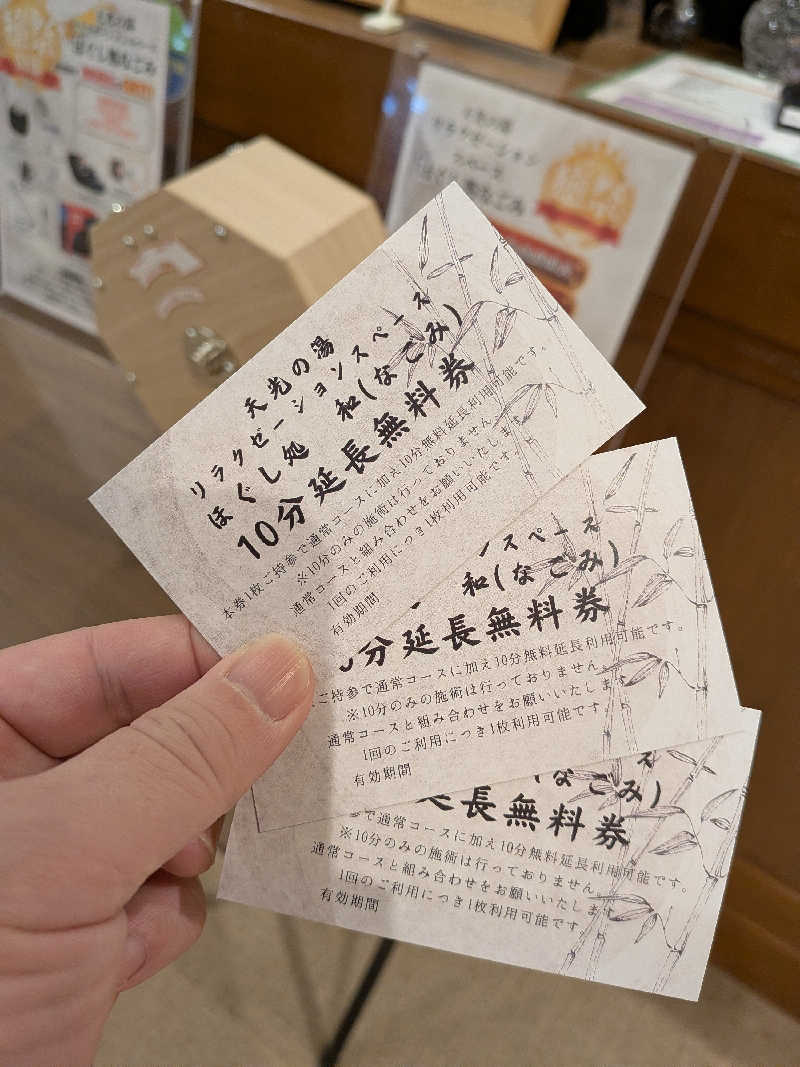 天光の湯
リラクゼーションスペース
ほぐし処 和(なごみ)
10分延長無料券
本券1枚ご持参で通常コースに加え10分無料延長利用可能です。
※10分のみの施術は行っておりません。
通常コースと組み合わせをお願いいたします。
1回のご利用につき1枚利用可能です。
有効期間
スペース
和(なごみ)
分延長無料券
ご持参で通常コースに加え10分無料延長利用可能です。
※10分のみの施術は行っておりません。
通常コースと組み合わせをお願いいたしま
1回のご利用につき1枚利用可能です。
有効期間
(なごみ)
長無料券
で通常コースに加え10分無料延長利用可能です。
※10分のみの施術は行っておりません。
通常コースと組み合わせをお願いいたします
1回のご利用につき1枚利用可能です。
有効期間